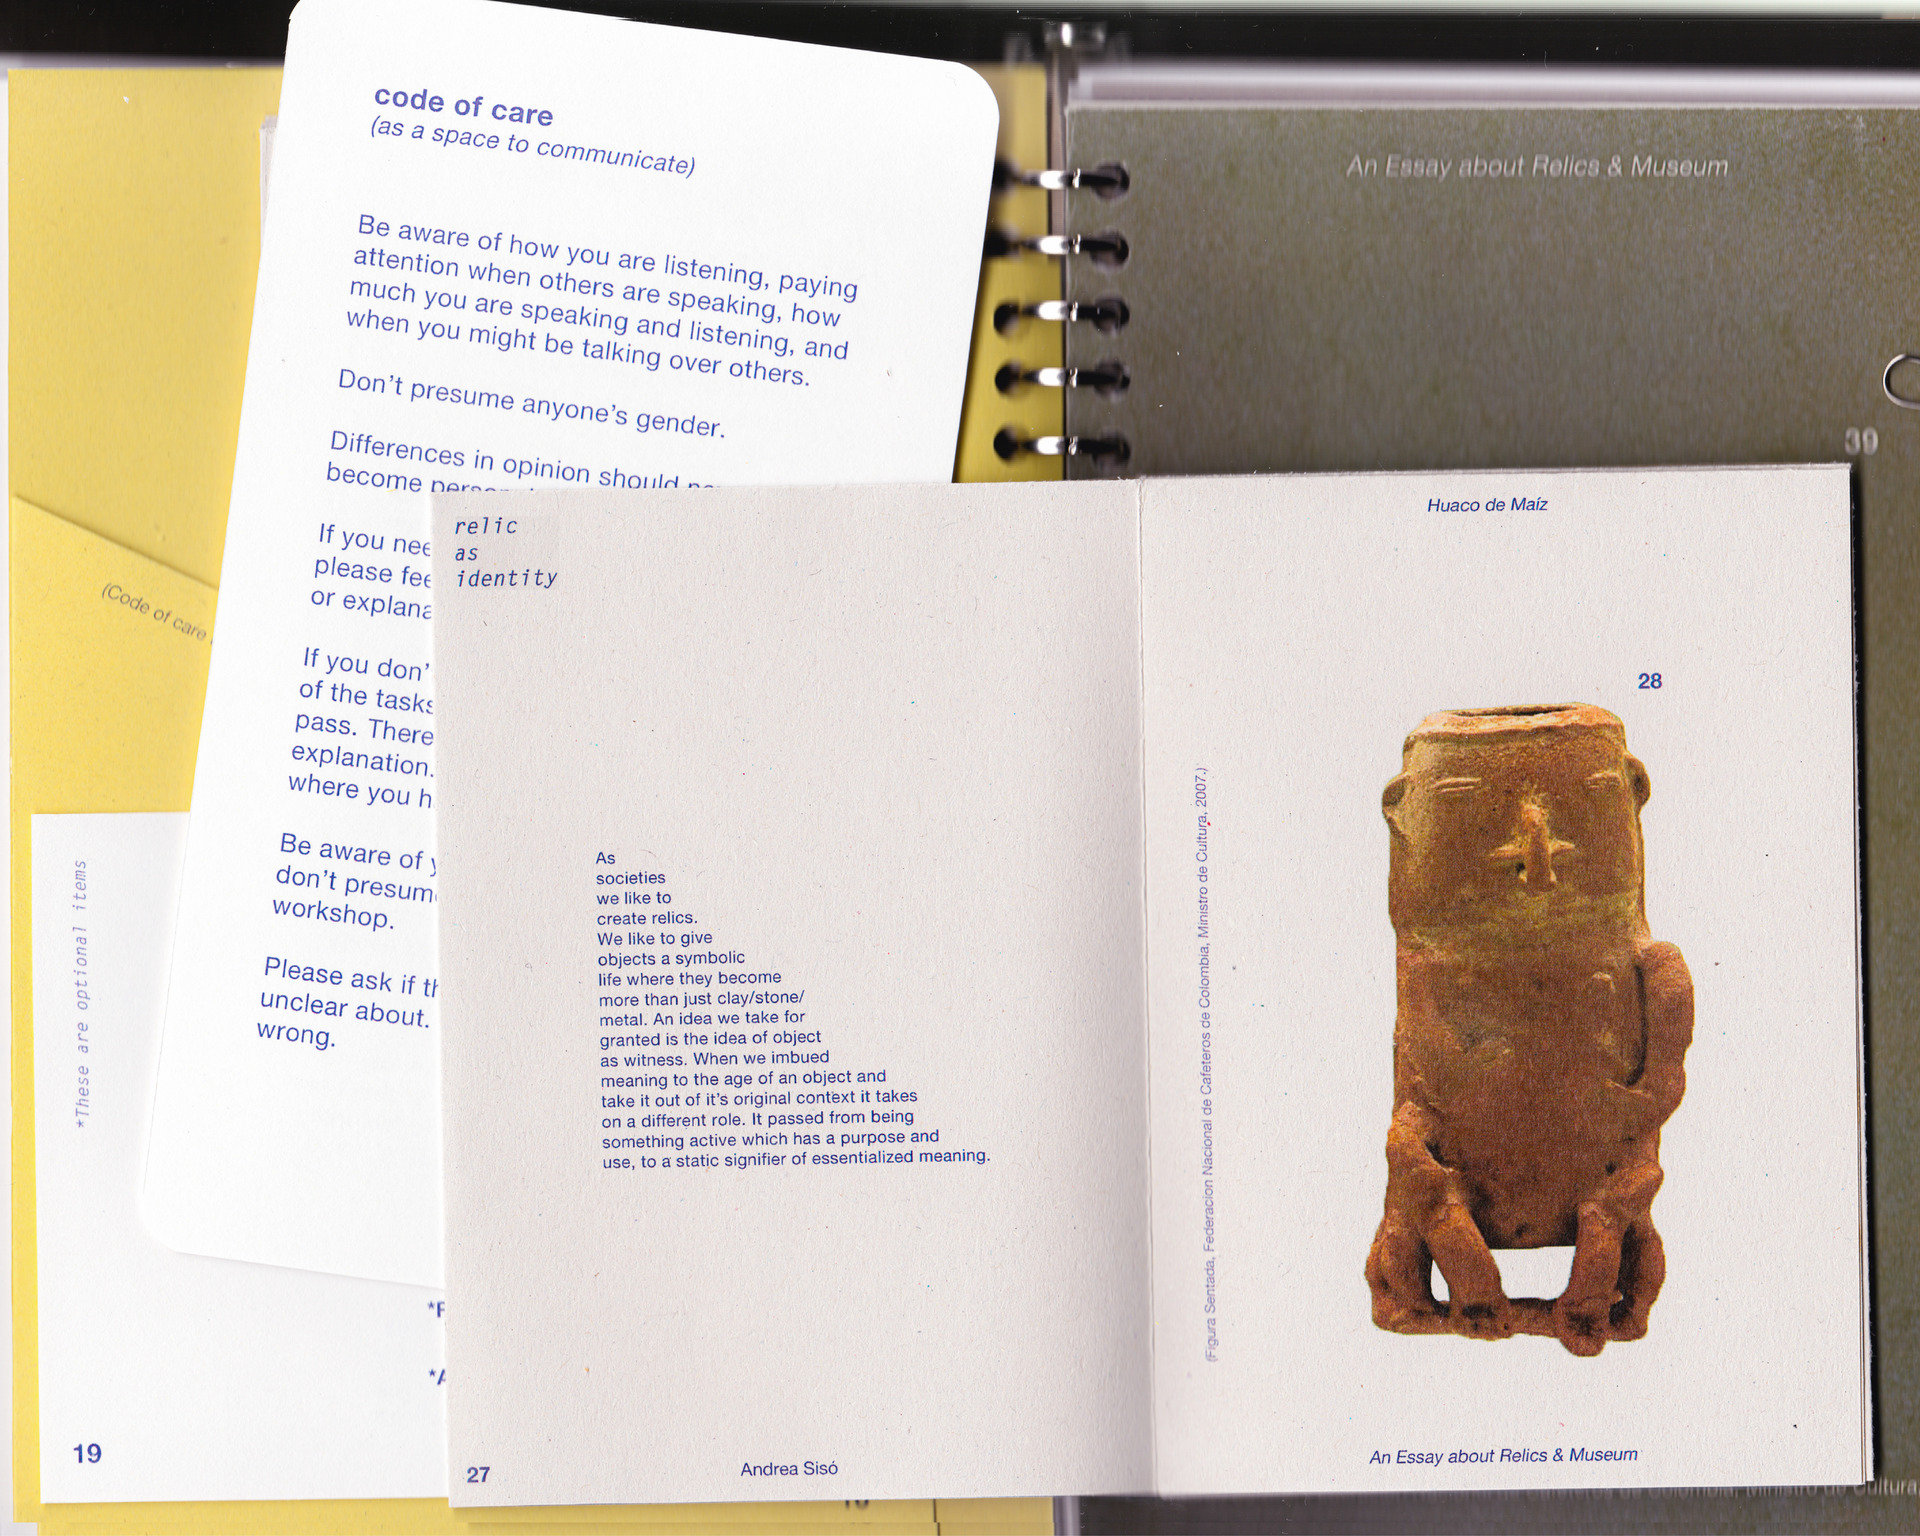 code of care
(as a space to communicate)
Be aware of how you are listening, paying
attention when others are speaking, how
much you are speaking and listening, and
when you might be talking over others.
Don't presume anyone's gender.
Differences in opinion should
become
If you
please
or
If you don'
of the tasks
pass. There
explanation.
where you
Be aware of
don't
workshop.
Please ask if
unclear about.
wrong.
(Code of care
*These are optional items
19
An Essay about Relics & Museum
39
relic
as
identity
As
societies
we like to
create relics.
We like to give
objects a symbolic
life where they become
more than just clay/stone/
metal. An idea we take for
granted is the idea of object
as witness. When we imbued
meaning to the age of an object and
take it out of it's original context it takes
on a different role. It passed from being
something active which has a purpose and
use, to a static signifier of essentialized meaning.
27
Andrea Sisó
Huaco de Maíz
28
(Figura Sentada, Federacion Nacional de Cafeteros de Colombia, Ministro de Cultura, 2007.)
An Essay about Relics & Museum